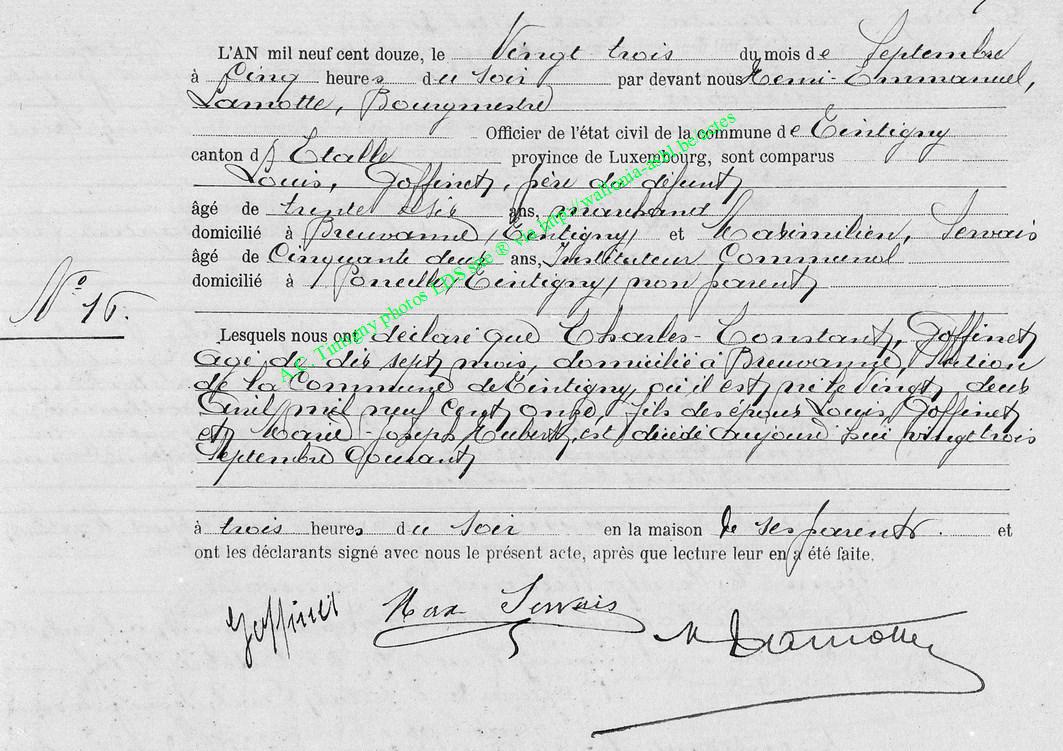 L'AN mil neuf cent douze, le Vingt trois du mois de Septembre
à Cinq heures du soir par devant nous Remi-Emmanuel,
Lamotte, Bourgmestre
Officier de l'état civil de la commune de Tintigny
canton d'Etalle province de Luxembourg, sont comparus
Louis, Goffinet, père du défunt
âgé de trente six ans, marchand
domicilié à Breuvanne (Tintigny) et Maximilien, Servais
âgé de Cinquante deux ans, Instituteur Communal
domicilié à Poncelle-Tintigny, non parent
N° 16.
Lesquels nous ont déclaré que Charles-Constant, Goffinet
agé de dix sept mois, domicilié à Breuvanne, section
de la Commune de Tintigny où il est né le vingt deux
Avril mil neuf cent onze, fils des époux Louis, Goffinet
et Marie Joseph Hubert, est décédé aujourd'hui vingt trois
Septembre Courant
à trois heures du soir en la maison de ses parents. et
ont les déclarants signé avec nous le présent acte, après que lecture leur en a été faite.
Goffinet Max Servais
Lamotte
A.C. Tintigny photos LDS site ® via http://wallonia-asbl.be/actes